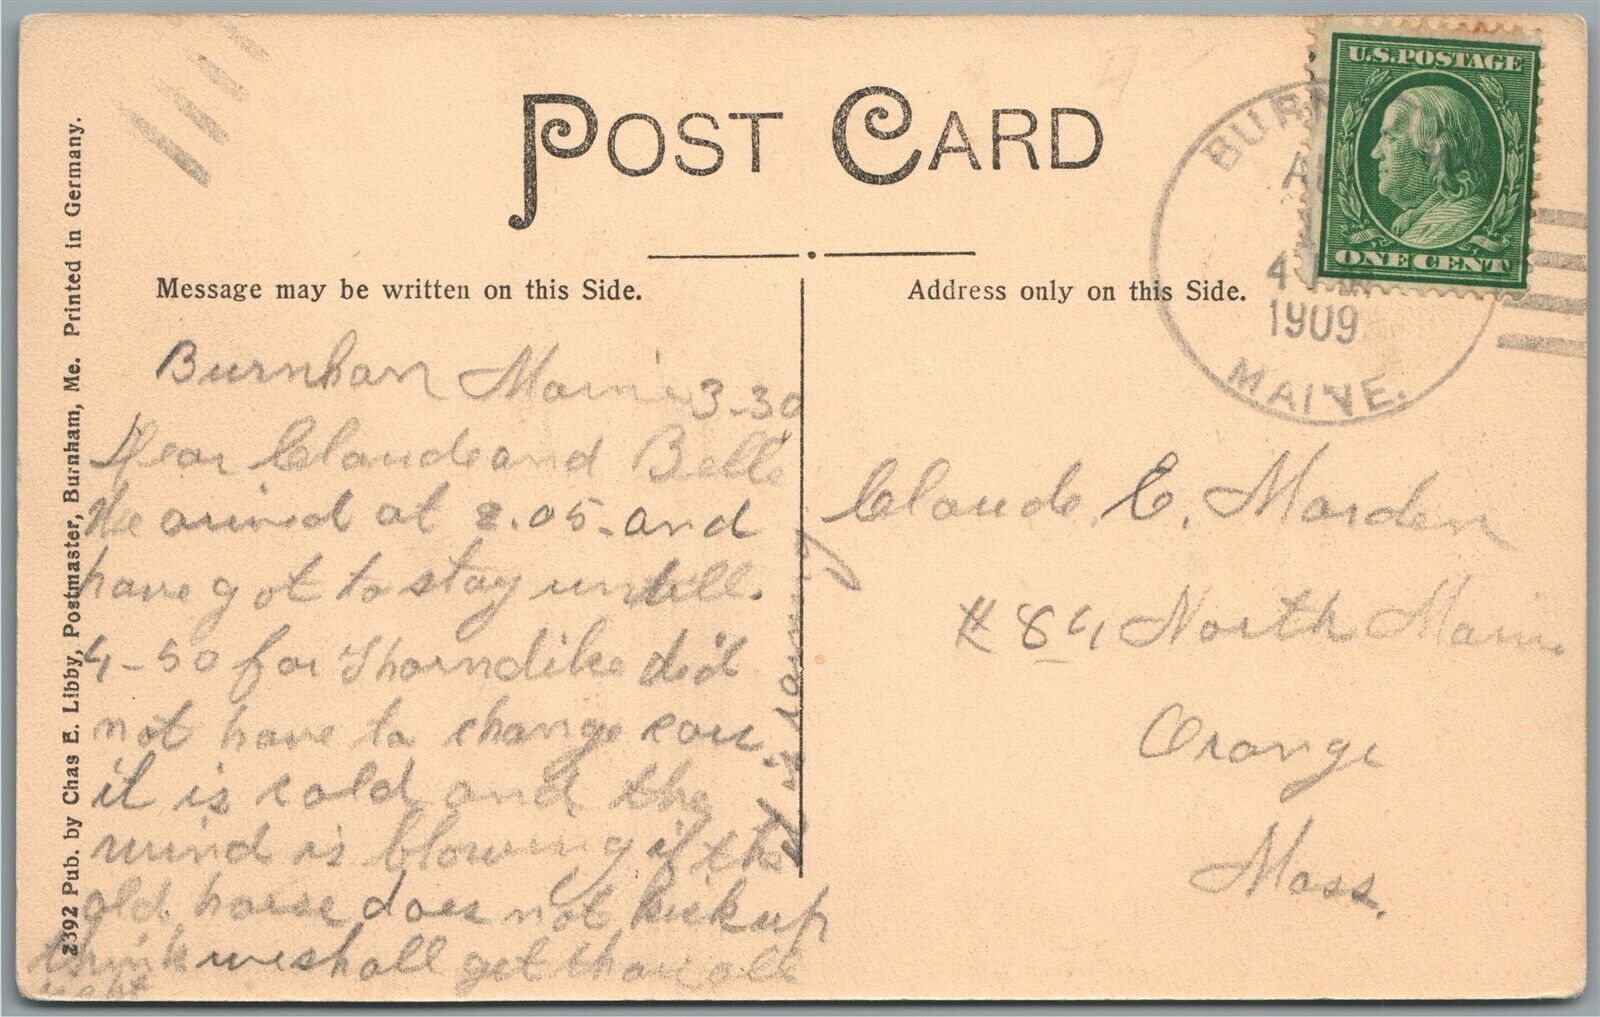 POST CARD
Message may be written on this Side.
Address only on this Side.
U.S.POSTAGE
ONE CENT
BURN
4
1909
MAINE.
2392 Pub. by Chas E. Libby, Postmaster, Burnham, Me. Printed in Germany.
Burnham Maine 3-30
Dear Claude and Bell
We arived at 2.05 - and
have got to stay untill.
4-50 for Thorndike did
not have to change cars
it is cold and the
wind is blowing if the
old horse does not kick up
think we shall get thare all
right
it is raining
Claude E. Marden
# 84 North Main
Orange
Mass.